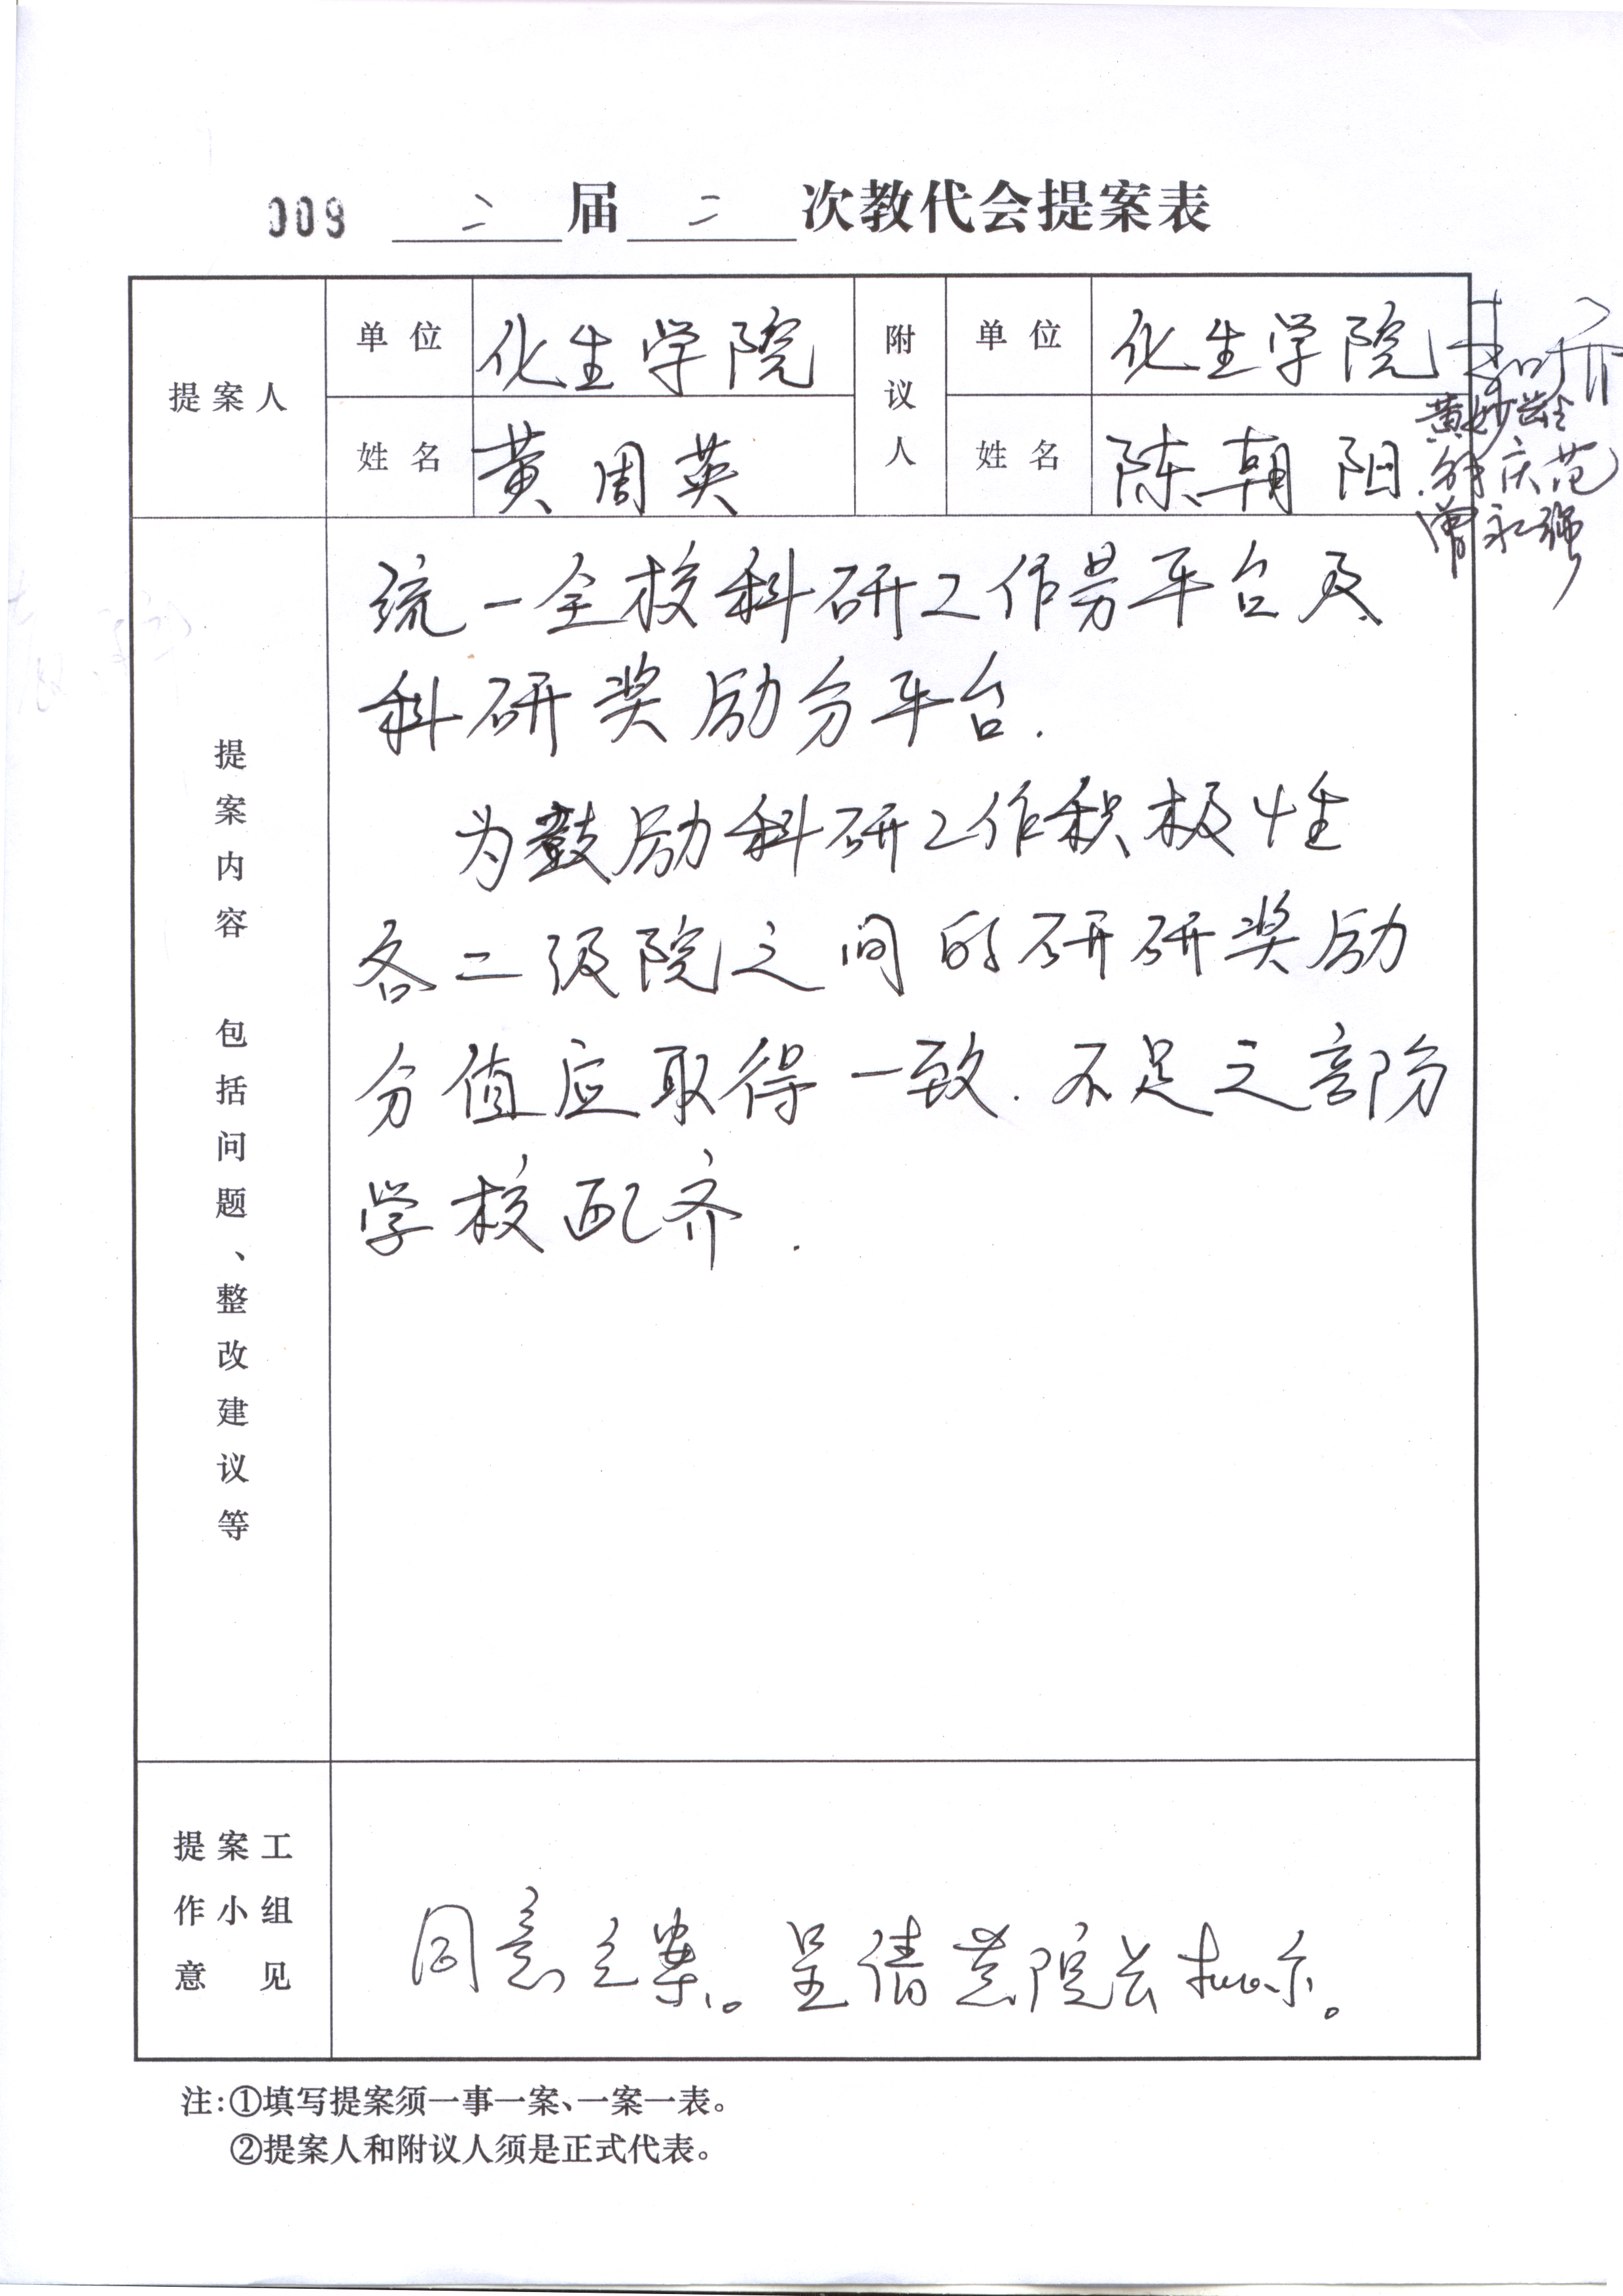 009 二 届 二 次教代会提案表
提案人 单位 化生学院 附议人 单位 化生学院
姓名 黄周英 姓名 陈朝阳
黄妙龄
庆范
曾永强
提案内容 包括问题、整改建议等
统一全校科研工作量平台及
科研奖励分平台.
为鼓励科研工作积极性
各二级院之间的研研奖励
分值应取得一致.不足之部份
学校配齐.
提案工作小组意见
同意立案。呈请黄院长批示。
注:①填写提案须一事一案、一案一表。
②提案人和附议人须是正式代表。